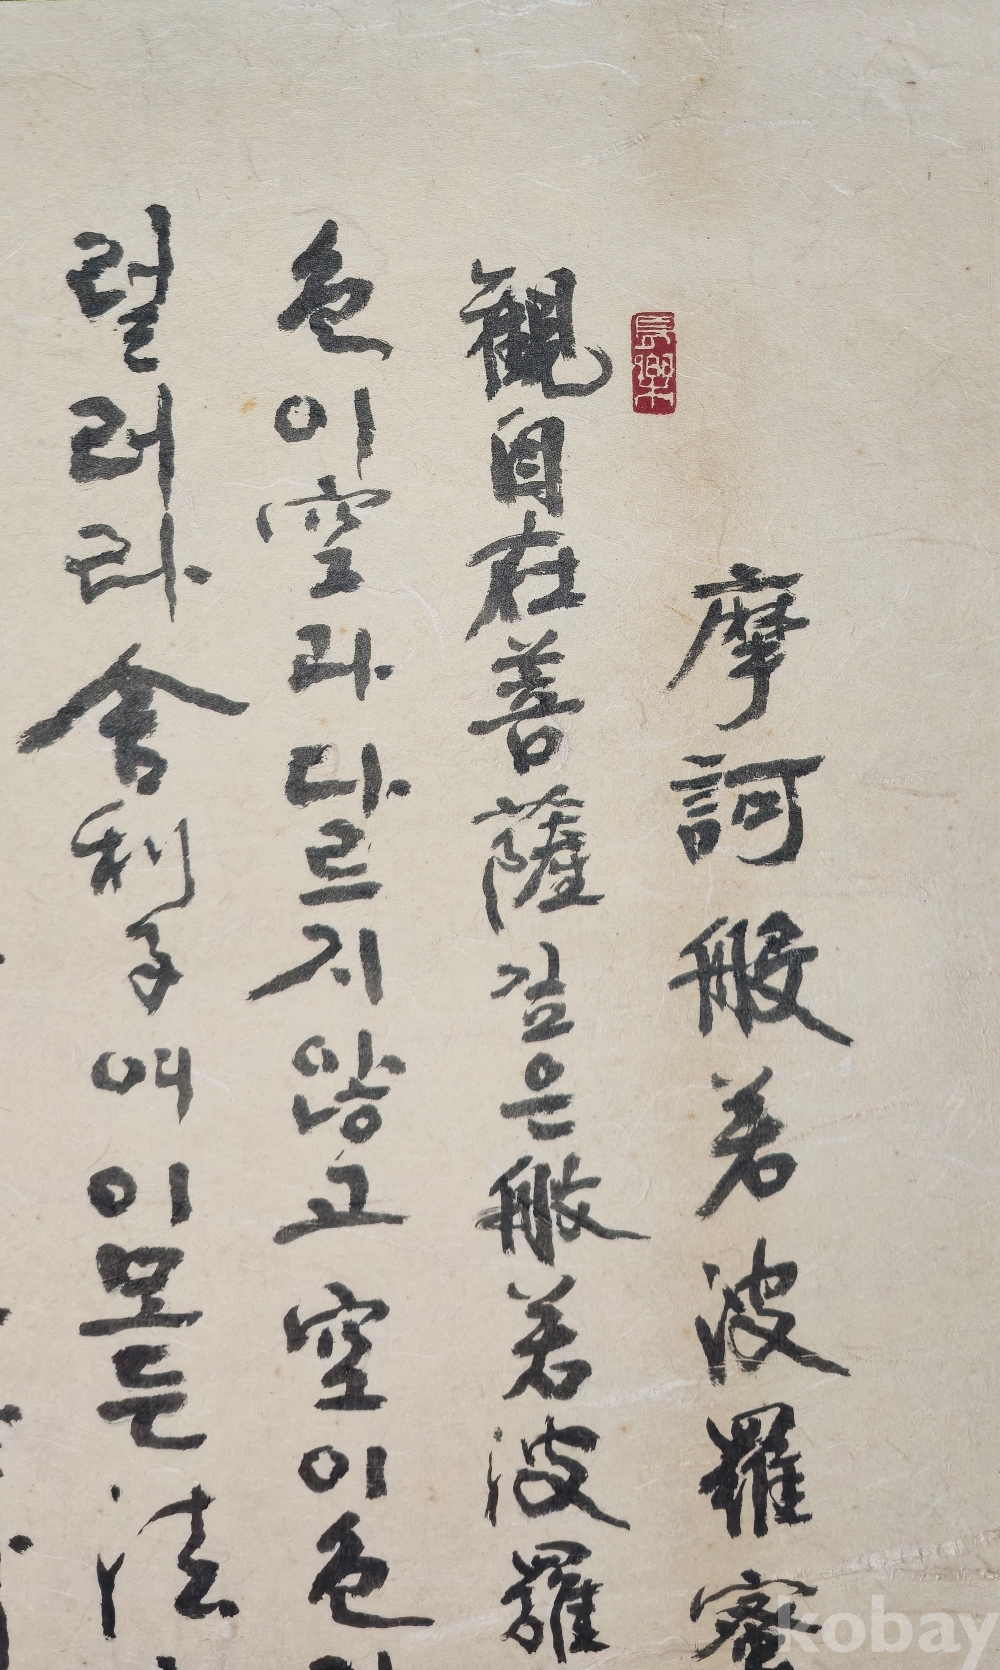 摩訶般若波羅蜜
長樂
觀自在菩薩깊은般若波羅
色이空과다르지않고空이色
럴러라舍利子여이모든法
kobay